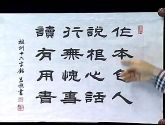 作本色人
說根心話
行無愧事
讀有用書
十六字銘